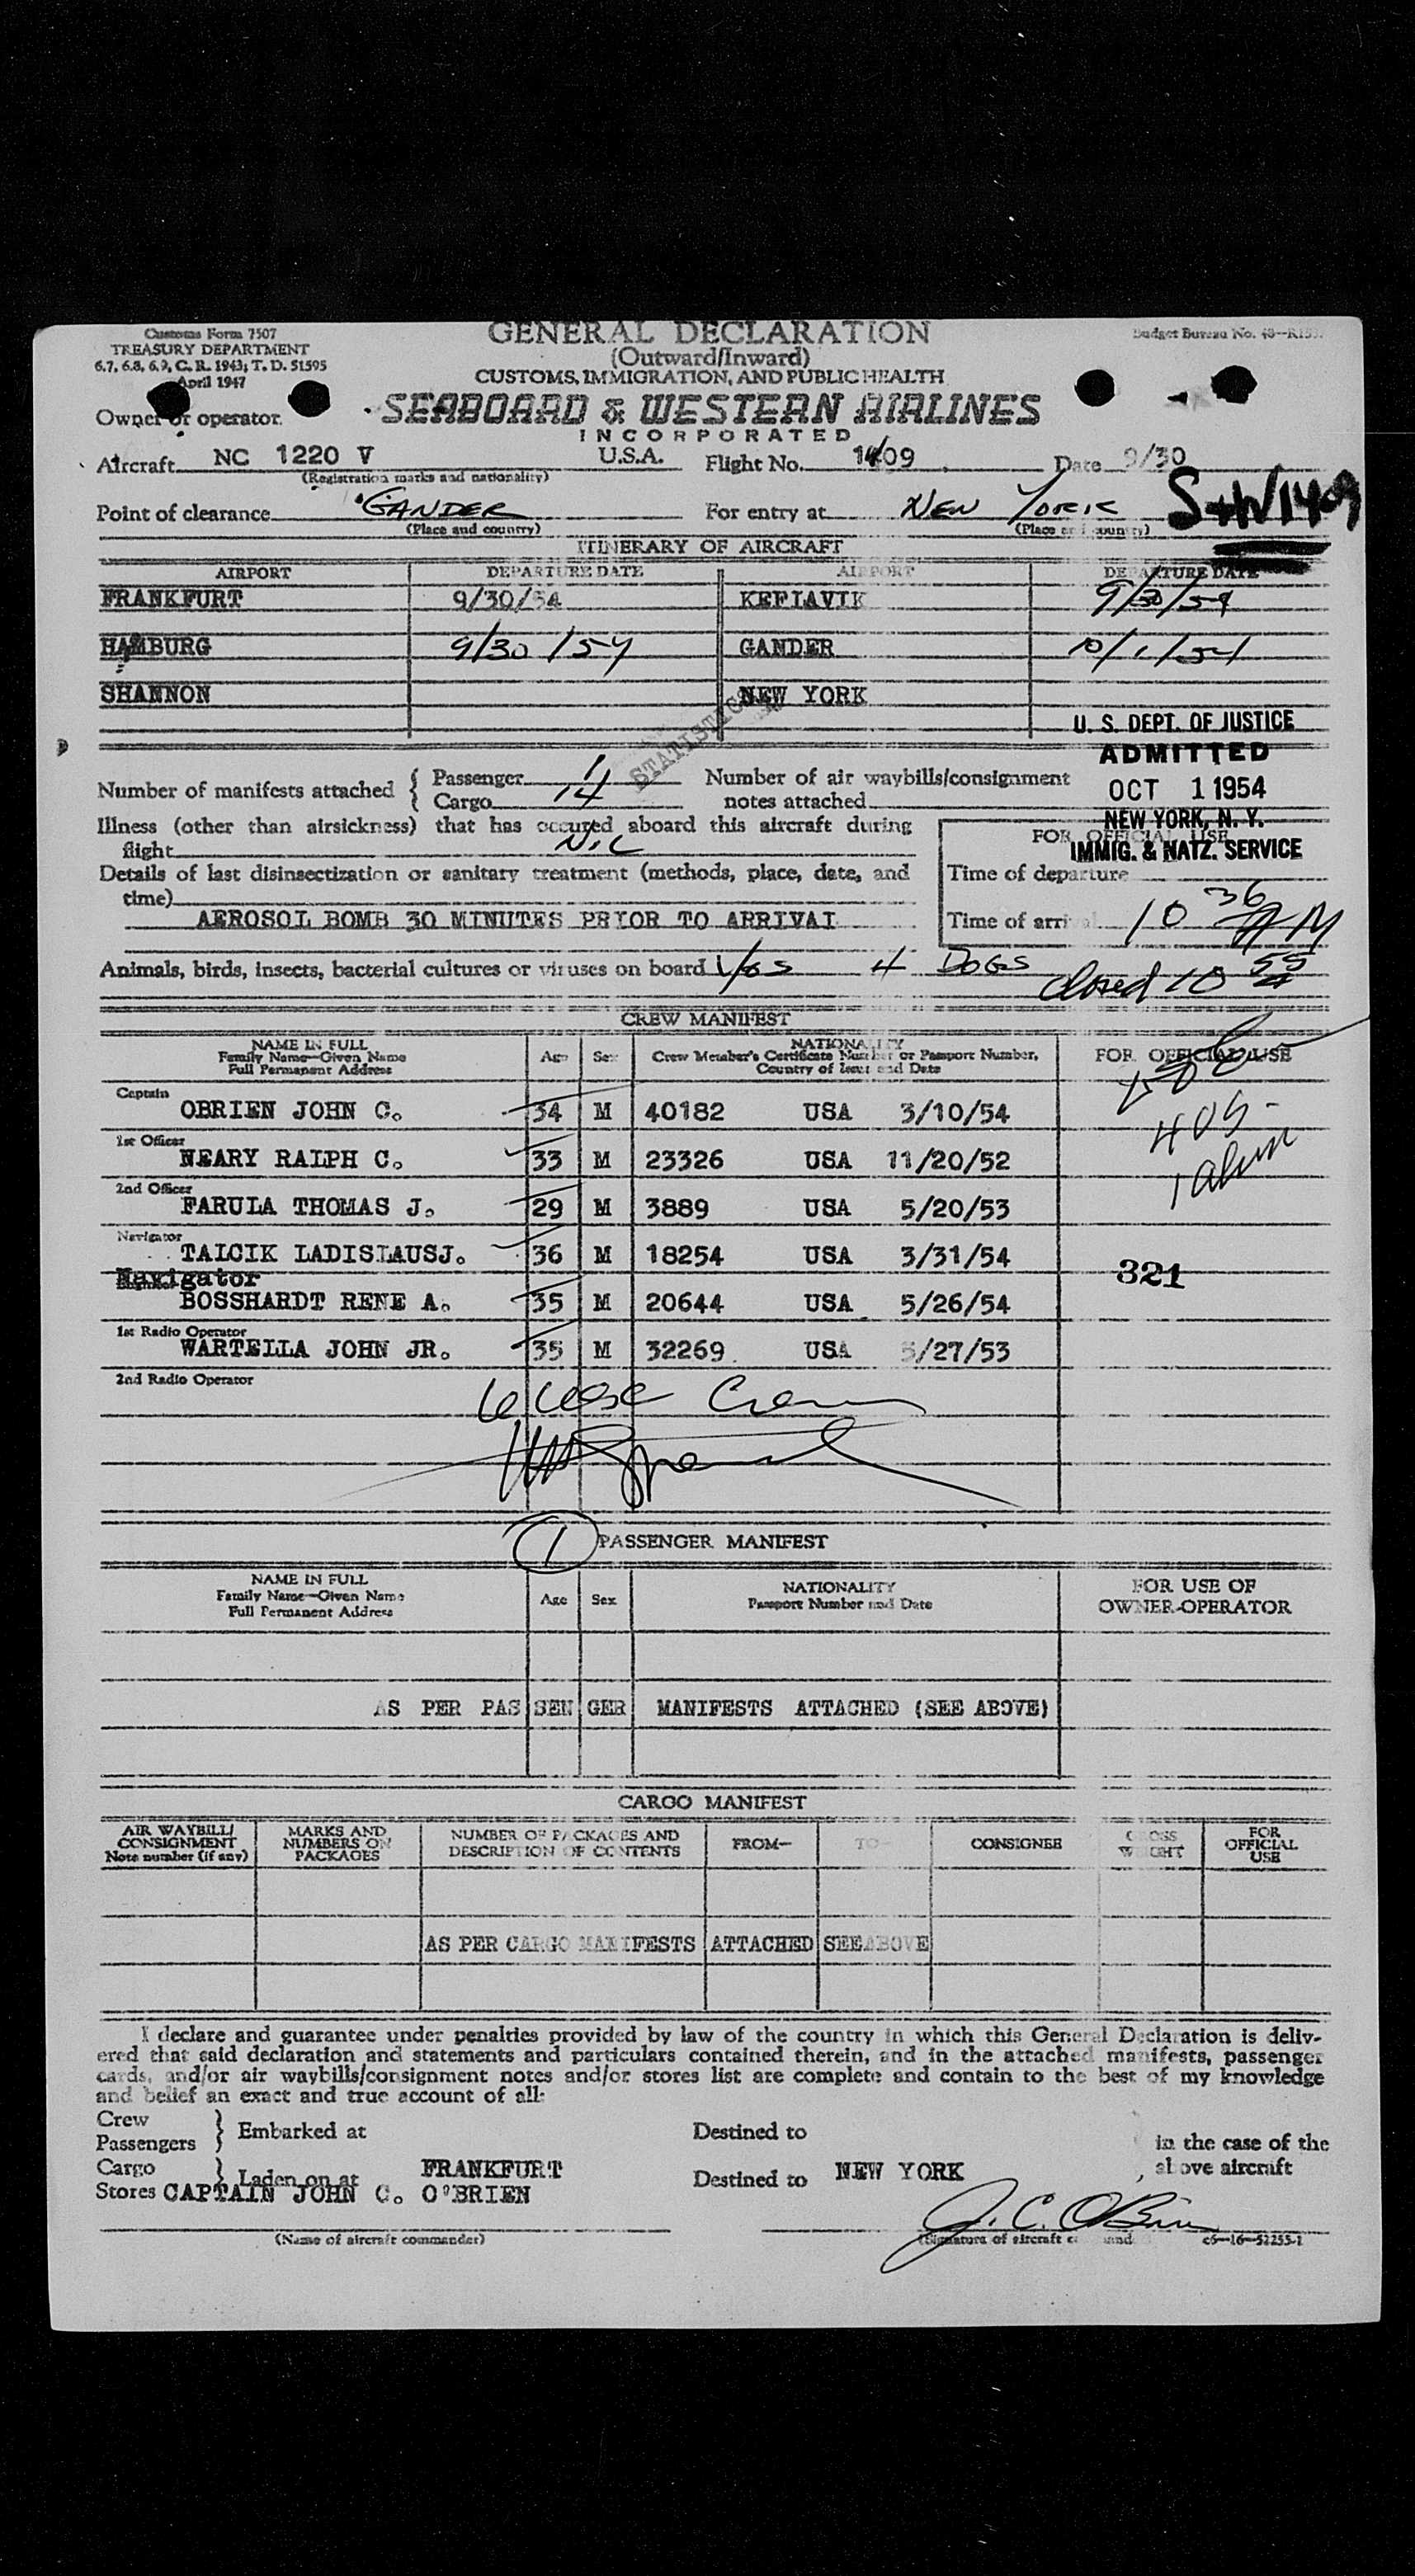 Customs Form 7507
TREASURY DEPARTMENT
6.7, 6.8, 6.9, C. R. 1943; T. D. 51595
April 1947
GENERAL DECLARATION
(Outward/Inward)
CUSTOMS, IMMIGRATION, AND PUBLIC HEALTH
Budget Bureau No.
Owner or operator.
SEABOARD & WESTERN AIRLINES
INCORPORATED
Aircraft NC 1220 V U.S.A. Flight No. 1409 Date 9/30
(Registration marks and nationality)
Point of clearance GANDER For entry at NEW YORK S+W1409
(Place and country) (Place and country)
ITINERARY OF AIRCRAFT
AIRPORT DEPARTURE DATE AIRPORT DEPARTURE DATE
FRANKFURT 9/30/54 KEFLAVIK 9/30/54
HAMBURG 9/30/54 GANDER 10/1/54
SHANNON NEW YORK
STATISTICS
U. S. DEPT. OF JUSTICE
ADMITTED
OCT 1 1954
NEW YORK, N. Y.
IMMIG. & NATZ. SERVICE
Number of manifests attached { Passenger 1
Cargo 14
Number of air waybills/consignment
notes attached
Illness (other than airsickness) that has occured aboard this aircraft during
flight NIL
FOR OFFICIAL USE
Details of last disinsectization or sanitary treatment (methods, place, date, and
time)
AEROSOL BOMB 30 MINUTES PRIOR TO ARRIVAL
Time of departure
Time of arrival 10 36 AM
Animals, birds, insects, bacterial cultures or viruses on board Yes 4 DOGS
Closed 10 55
CREW MANIFEST
NAME IN FULL
Family Name—Given Name
Full Permanent Address
Age Sex
NATIONALITY
Crew Member's Certificate Number or Passport Number,
Country of Issue and Date
FOR OFFICIAL USE
Captain
OBRIEN JOHN C. 34 M 40182 USA 3/10/54
1st Officer
NEARY RALPH C. 33 M 23326 USA 11/20/52
2nd Officer
FARULA THOMAS J. 29 M 3889 USA 5/20/53
Navigator
TALCIK LADISLAUSJ. 36 M 18254 USA 3/31/54
321
Navigator
BOSSHARDT RENE A. 35 M 20644 USA 5/26/54
1st Radio Operator
WARTELLA JOHN JR. 35 M 32269 USA /27/53
2nd Radio Operator
1 PASSENGER MANIFEST
NAME IN FULL
Family Name—Given Name
Full Permanent Address
Age Sex
NATIONALITY
Passport Number and Date
FOR USE OF
OWNER-OPERATOR
AS PER PASSENGER MANIFESTS ATTACHED (SEE ABOVE)
CARGO MANIFEST
AIR WAYBILL/
CONSIGNMENT
Note number (if any)
MARKS AND
NUMBERS ON
PACKAGES
NUMBER OF PACKAGES AND
DESCRIPTION OF CONTENTS
FROM— TO— CONSIGNEE
GROSS
WEIGHT
FOR
OFFICIAL
USE
AS PER CARGO MANIFESTS ATTACHED SEE ABOVE
I declare and guarantee under penalties provided by law of the country in which this General Declaration is deliv-
ered that said declaration and statements and particulars contained therein, and in the attached manifests, passenger
cards, and/or air waybills/consignment notes and/or stores list are complete and contain to the best of my knowledge
and belief an exact and true account of all:
Crew
Passengers } Embarked at Destined to in the case of the
Cargo
Stores } Laden on at FRANKFURT Destined to NEW YORK above aircraft
CAPTAIN JOHN C. O'BRIEN J. C. O'Brien
(Name of aircraft commander) (Signature of aircraft command c6—16—52255-1